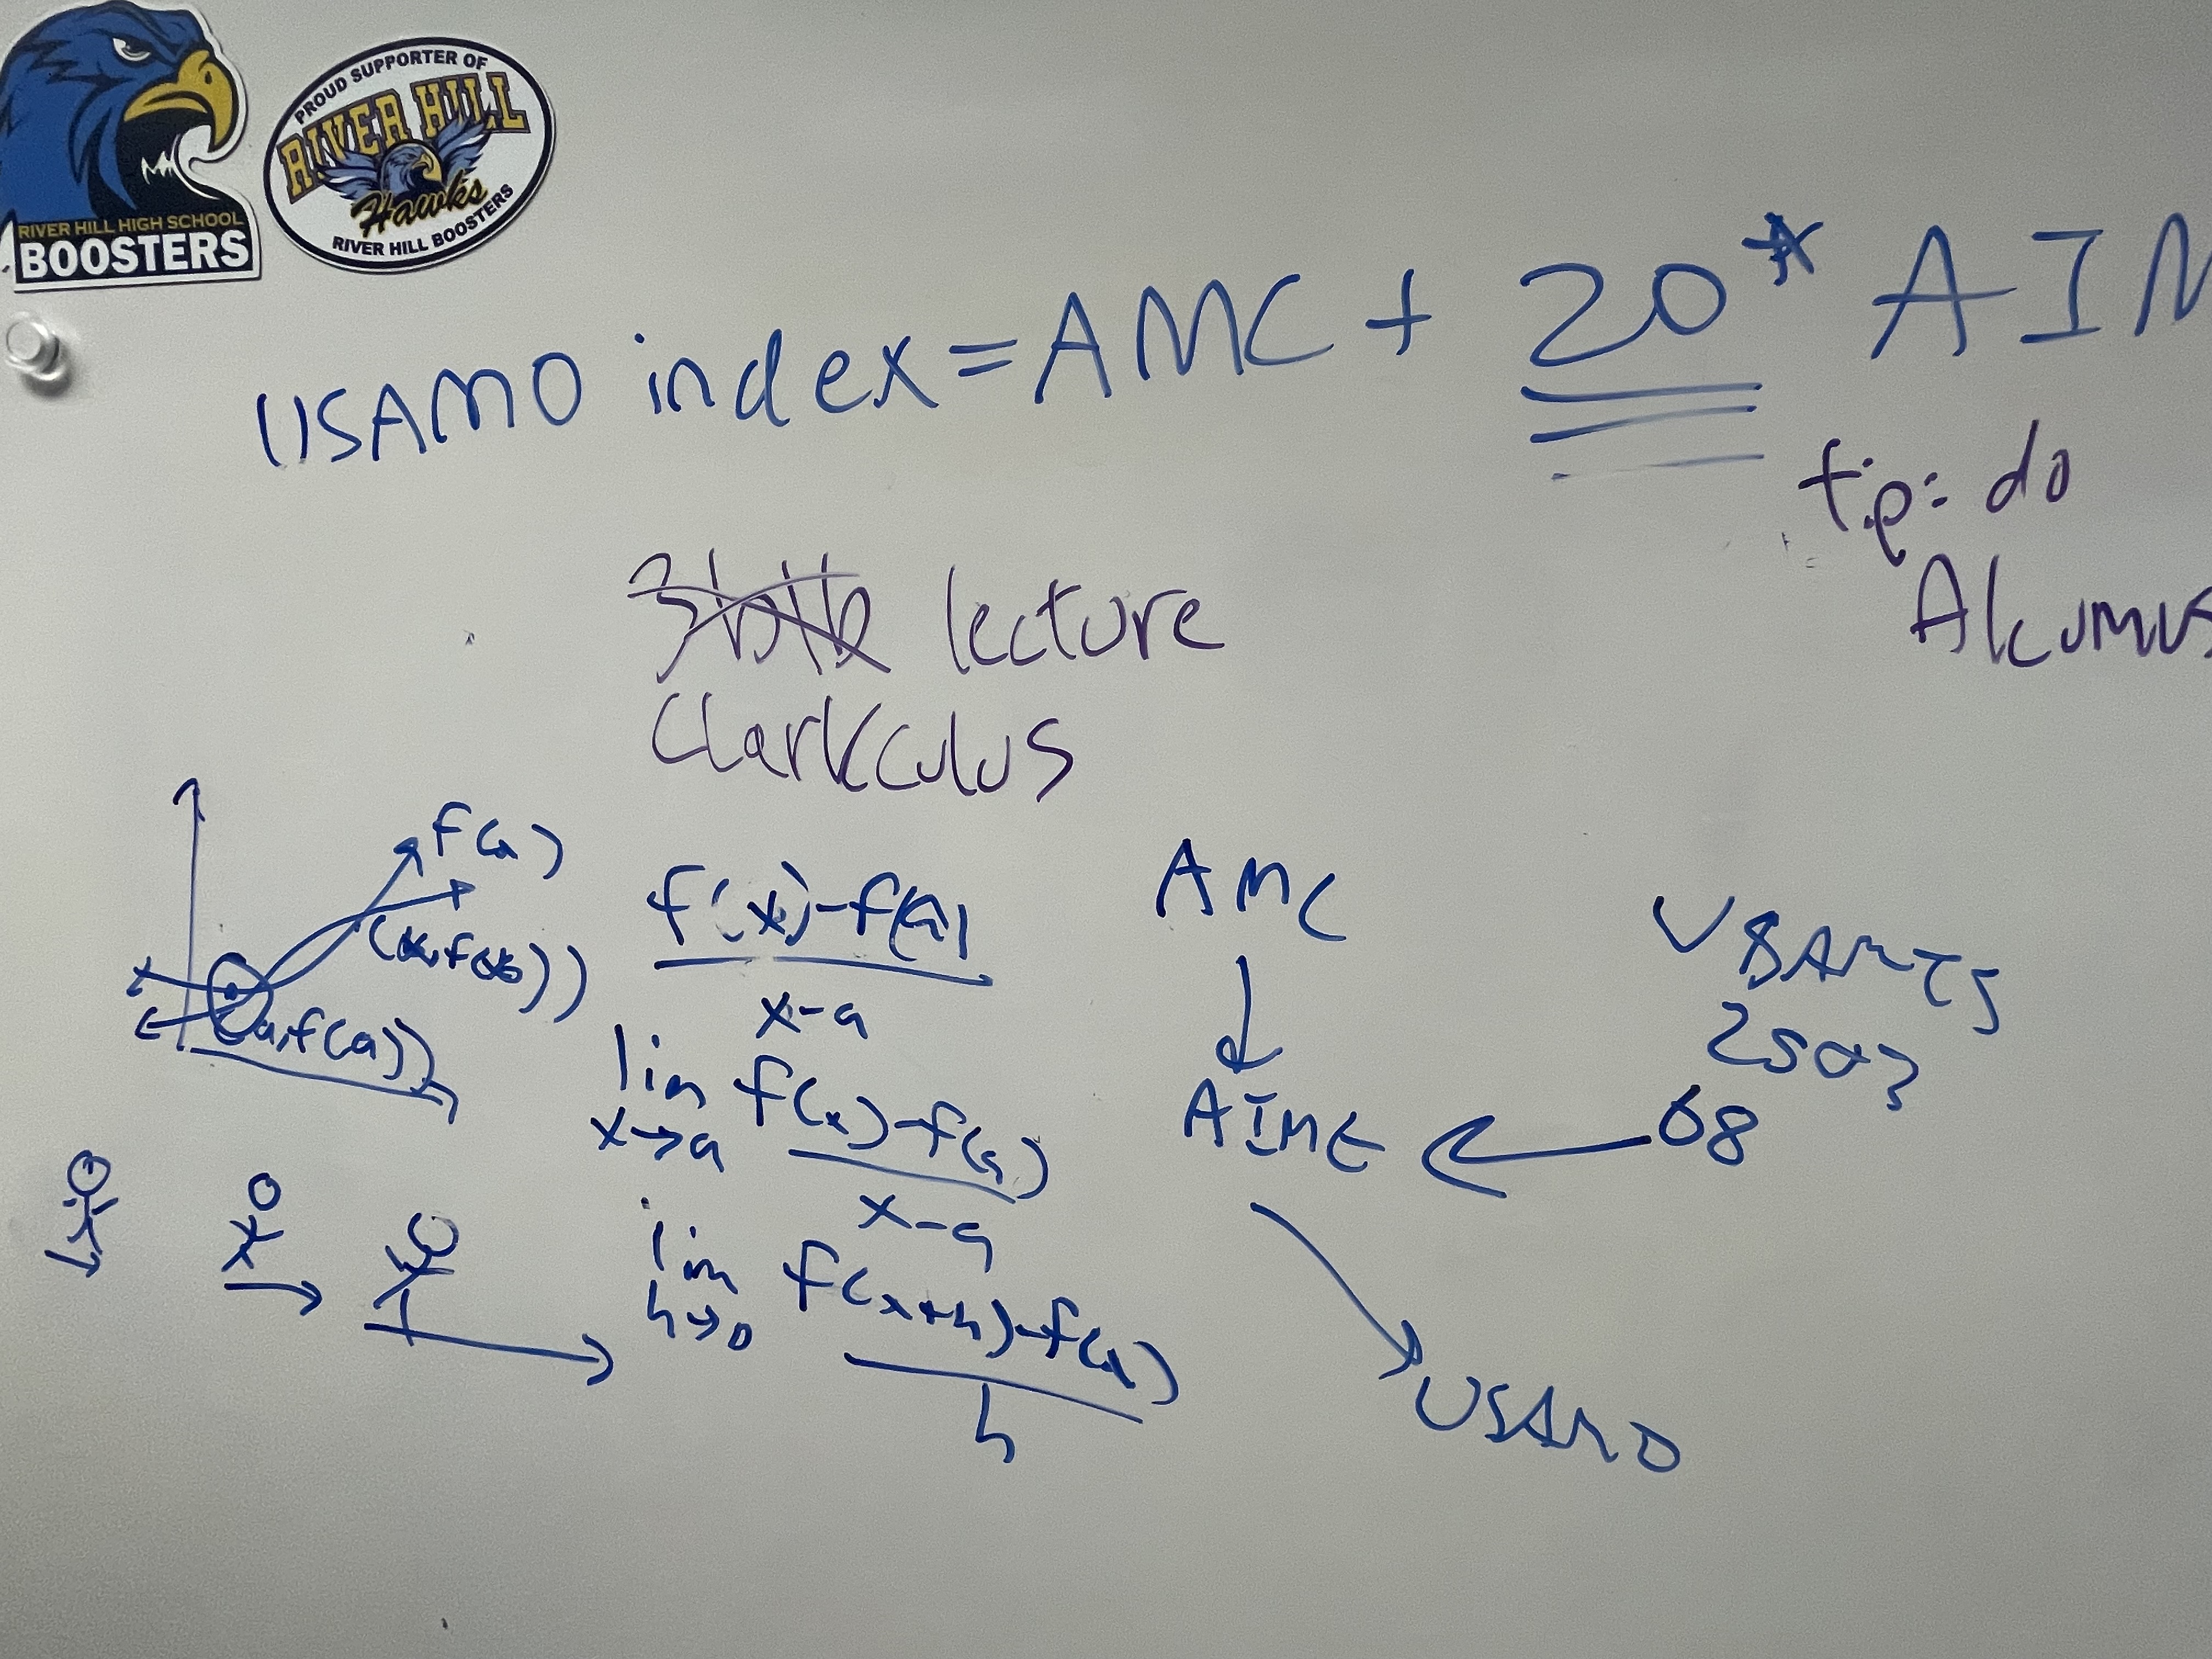 RIVER HILL HIGH SCHOOL
BOOSTERS
PROUD SUPPORTER OF
RIVER HILL
Hawks
RIVER HILL BOOSTERS
USAMO index = AMC + 20* AIM
tip: do
Alcumus
lecture
Clarkculus
f(a)
(a, f(a))
f(x)-f(a)
x-a
lim f(x)-f(a)
x→a
x-a
lim f(x+h)-f(a)
h→0
h
AMC
AIME
USAMO
USAMTS
68